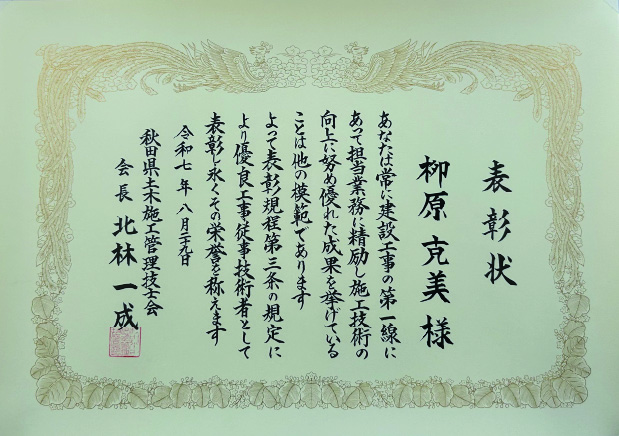 表彰状
柳原克美様
あなたは常に建設工事の第一線に
あって担当業務に精励し施工技術の
向上に努め優れた成果を挙げている
ことは他の模範であります
よって表彰規程第三条の規定に
より優良工事従事技術者として
表彰し永くその栄誉を称えます
令和七年八月二十九日
秋田県土木施工管理技士会
会長 北林一成